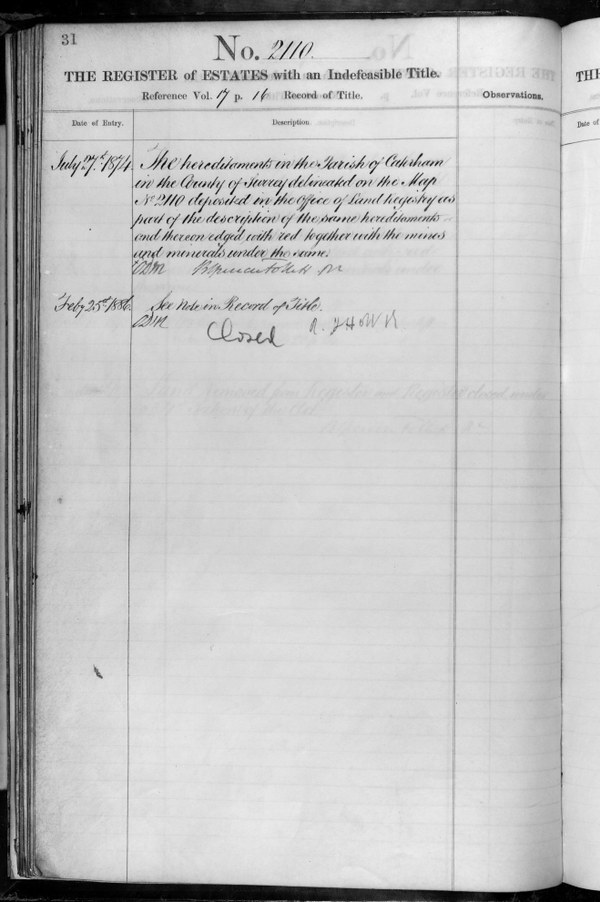 31
No. 2110.
THE REGISTER of ESTATES with an Indefeasible Title.
Reference Vol. 17 p. 16 Record of Title.
Observations.
Date of Entry.
Description.
July 27th. 1874.
The hereditaments in the Parish of Caterham
in the County of Surrey delineated on the Map
No 2110 deposited in the Office of Land Registry as
part of the description of the same hereditaments
and thereon edged with red together with the mines
and minerals under the same.
Feby 25th. 1886.
See Note in Record of Title.
Closed
THE
Date of